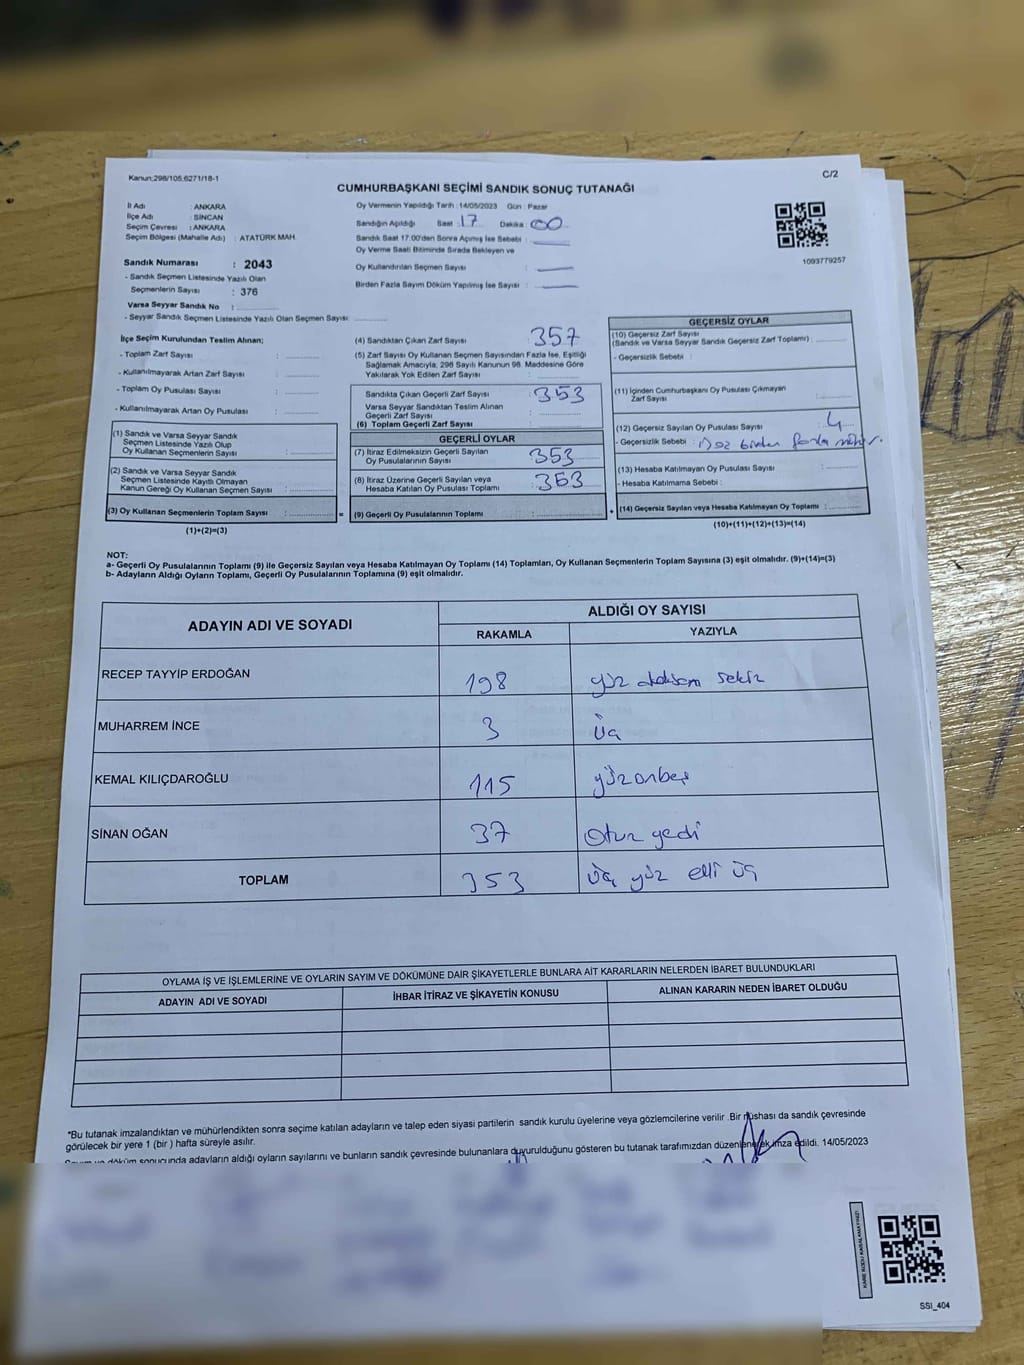 Kanun:298/105,6271/18-1
C/2
CUMHURBAŞKANI SEÇİMİ SANDIK SONUÇ TUTANAĞI
İl Adı : ANKARA
İlçe Adı : SİNCAN
Seçim Çevresi : ANKARA
Seçim Bölgesi (Mahalle Adı) : ATATÜRK MAH.
Sandık Numarası : 2043
- Sandık Seçmen Listesinde Yazılı Olan
Seçmenlerin Sayısı : 376
Varsa Seyyar Sandık No :
- Seyyar Sandık Seçmen Listesinde Yazılı Olan Seçmen Sayısı:
Oy Vermenin Yapıldığı Tarih : 14/05/2023 Gün : Pazar
Sandığın Açıldığı Saat : 17 Dakika : 00
Sandık Saat 17:00'den Sonra Açımış İse Sebebi :
Oy Verme Saati Bitiminde Sırada Bekleyen ve
Oy Kullandırılan Seçmen Sayısı :
Birden Fazla Sayım Döküm Yapılmış İse Sayısı :
1093779257
İlçe Seçim Kurulundan Teslim Alınan;
- Toplam Zarf Sayısı :
- Kullanılmayarak Artan Zarf Sayısı :
- Toplam Oy Pusulası Sayısı :
- Kullanılmayarak Artan Oy Pusulası :
(1) Sandık ve Varsa Seyyar Sandık
Seçmen Listesinde Yazılı Olup
Oy Kullanan Seçmenlerin Sayısı :
(2) Sandık ve Varsa Seyyar Sandık
Seçmen Listesinde Kayıtlı Olmayan
Kanun Gereği Oy Kullanan Seçmen Sayısı :
(3) Oy Kullanan Seçmenlerin Toplam Sayısı :
(1)+(2)=(3)
=
(4) Sandıktan Çıkan Zarf Sayısı : 357
(5) Zarf Sayısı Oy Kullanan Seçmen Sayısından Fazla İse, Eşitliği
Sağlamak Amacıyla; 298 Sayılı Kanunun 98. Maddesine Göre
Yakılarak Yok Edilen Zarf Sayısı :
Sandıkta Çıkan Geçerli Zarf Sayısı : 353
Varsa Seyyar Sandıktan Teslim Alınan
Geçerli Zarf Sayısı :
(6) Toplam Geçerli Zarf Sayısı :
GEÇERLİ OYLAR
(7) İtiraz Edilmeksizin Geçerli Sayılan
Oy Pusulalarının Sayısı : 353
(8) İtiraz Üzerine Geçerli Sayılan veya
Hesaba Katılan Oy Pusulası Toplamı : 353
(9) Geçerli Oy Pusulalarının Toplamı :
+
GEÇERSİZ OYLAR
(10) Geçersiz Zarf Sayısı
(Sandık ve Varsa Seyyar Sandık Geçersiz Zarf Toplamı) :
- Geçersizlik Sebebi :
(11) İçinden Cumhurbaşkanı Oy Pusulası Çıkmayan
Zarf Sayısı :
(12) Geçersiz Sayılan Oy Pusulası Sayısı : 4
- Geçersizlik Sebebi : birden fazla mühür.
(13) Hesaba Katılmayan Oy Pusulası Sayısı :
- Hesaba Katılmama Sebebi :
(14) Geçersiz Sayılan veya Hesaba Katılmayan Oy Toplamı :
(10)+(11)+(12)+(13)=(14)
NOT:
a- Geçerli Oy Pusulalarının Toplamı (9) ile Geçersiz Sayılan veya Hesaba Katılmayan Oy Toplamı (14) Toplamları, Oy Kullanan Seçmenlerin Toplam Sayısına (3) eşit olmalıdır. (9)+(14)=(3)
b- Adayların Aldığı Oyların Toplamı, Geçerli Oy Pusulalarının Toplamına (9) eşit olmalıdır.
ADAYIN ADI VE SOYADI
ALDIĞI OY SAYISI
RAKAMLA YAZIYLA
RECEP TAYYİP ERDOĞAN 198 yüz doksan sekiz
MUHARREM İNCE 3 üç
KEMAL KILIÇDAROĞLU 115 yüzonbeş
SİNAN OĞAN 37 Otuz yedi
TOPLAM 353 üç yüz elli üç
OYLAMA İŞ VE İŞLEMLERİNE VE OYLARIN SAYIM VE DÖKÜMÜNE DAİR ŞİKAYETLERLE BUNLARA AİT KARARLARIN NELERDEN İBARET BULUNDUKLARI
ADAYIN ADI VE SOYADI İHBAR İTİRAZ VE ŞİKAYETİN KONUSU ALINAN KARARIN NEDEN İBARET OLDUĞU
*Bu tutanak imzalandıktan ve mühürlendikten sonra seçime katılan adayların ve talep eden siyasi partilerin sandık kurulu üyelerine veya gözlemcilerine verilir .Bir nüshası da sandık çevresinde
görülecek bir yere 1 (bir ) hafta süreyle asılır.
döküm sonucunda adayların aldığı oyların sayılarını ve bunların sandık çevresinde bulunanlara duyurulduğunu gösteren bu tutanak tarafımızdan düzenlenerek imza edildi. 14/05/2023
KARE KODU KARALAMAYINIZ!
SSI_404